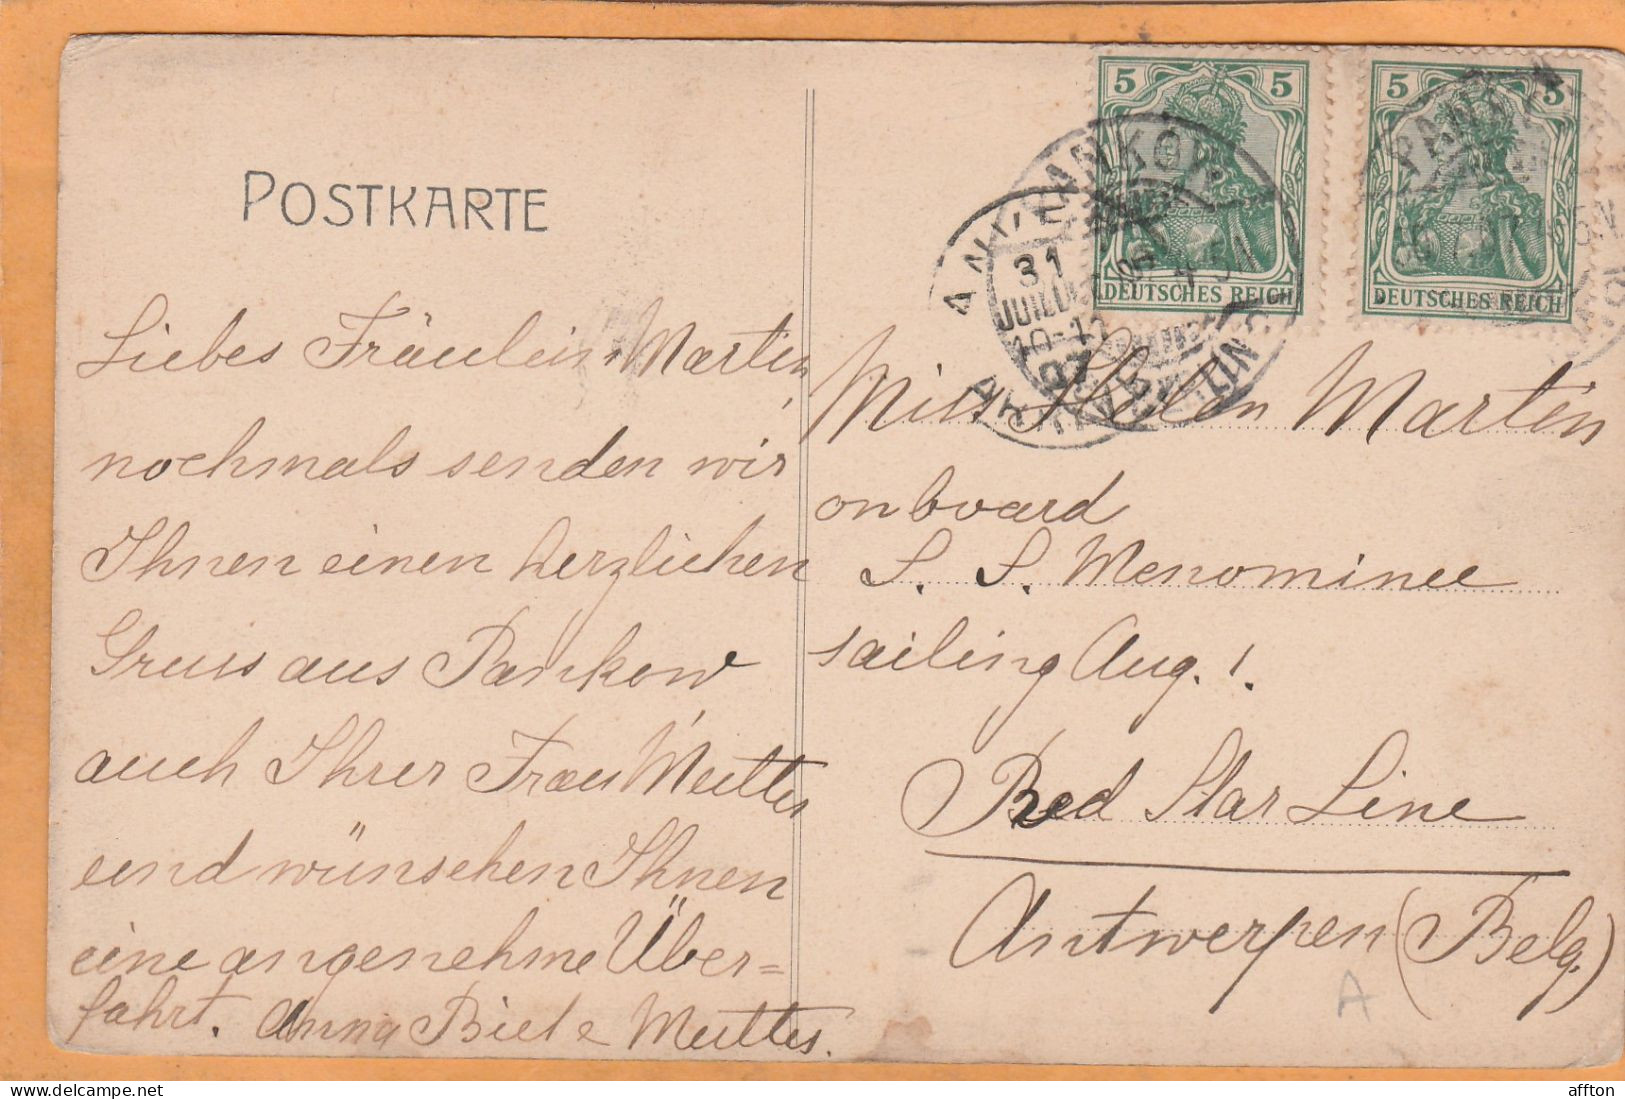 POSTKARTE
Liebes Fräulein Martin,
nochmals senden wir
Ihnen einen herzlichen
Gruss aus Pankow
auch Ihrer Frau Mutter
und wünschen Ihnen
eine angenehme Über=
fahrt. Anna Biel & Mutter.
5 5
DEUTSCHES REICH
5 5
DEUTSCHES REICH
PANKOW
31
JUILLET
10-11
07
Miss Helen Martin
on board
S. S. Menominee
sailing Aug. 1.
Red Star Line
Antwerpen (Belg.)
A
affton